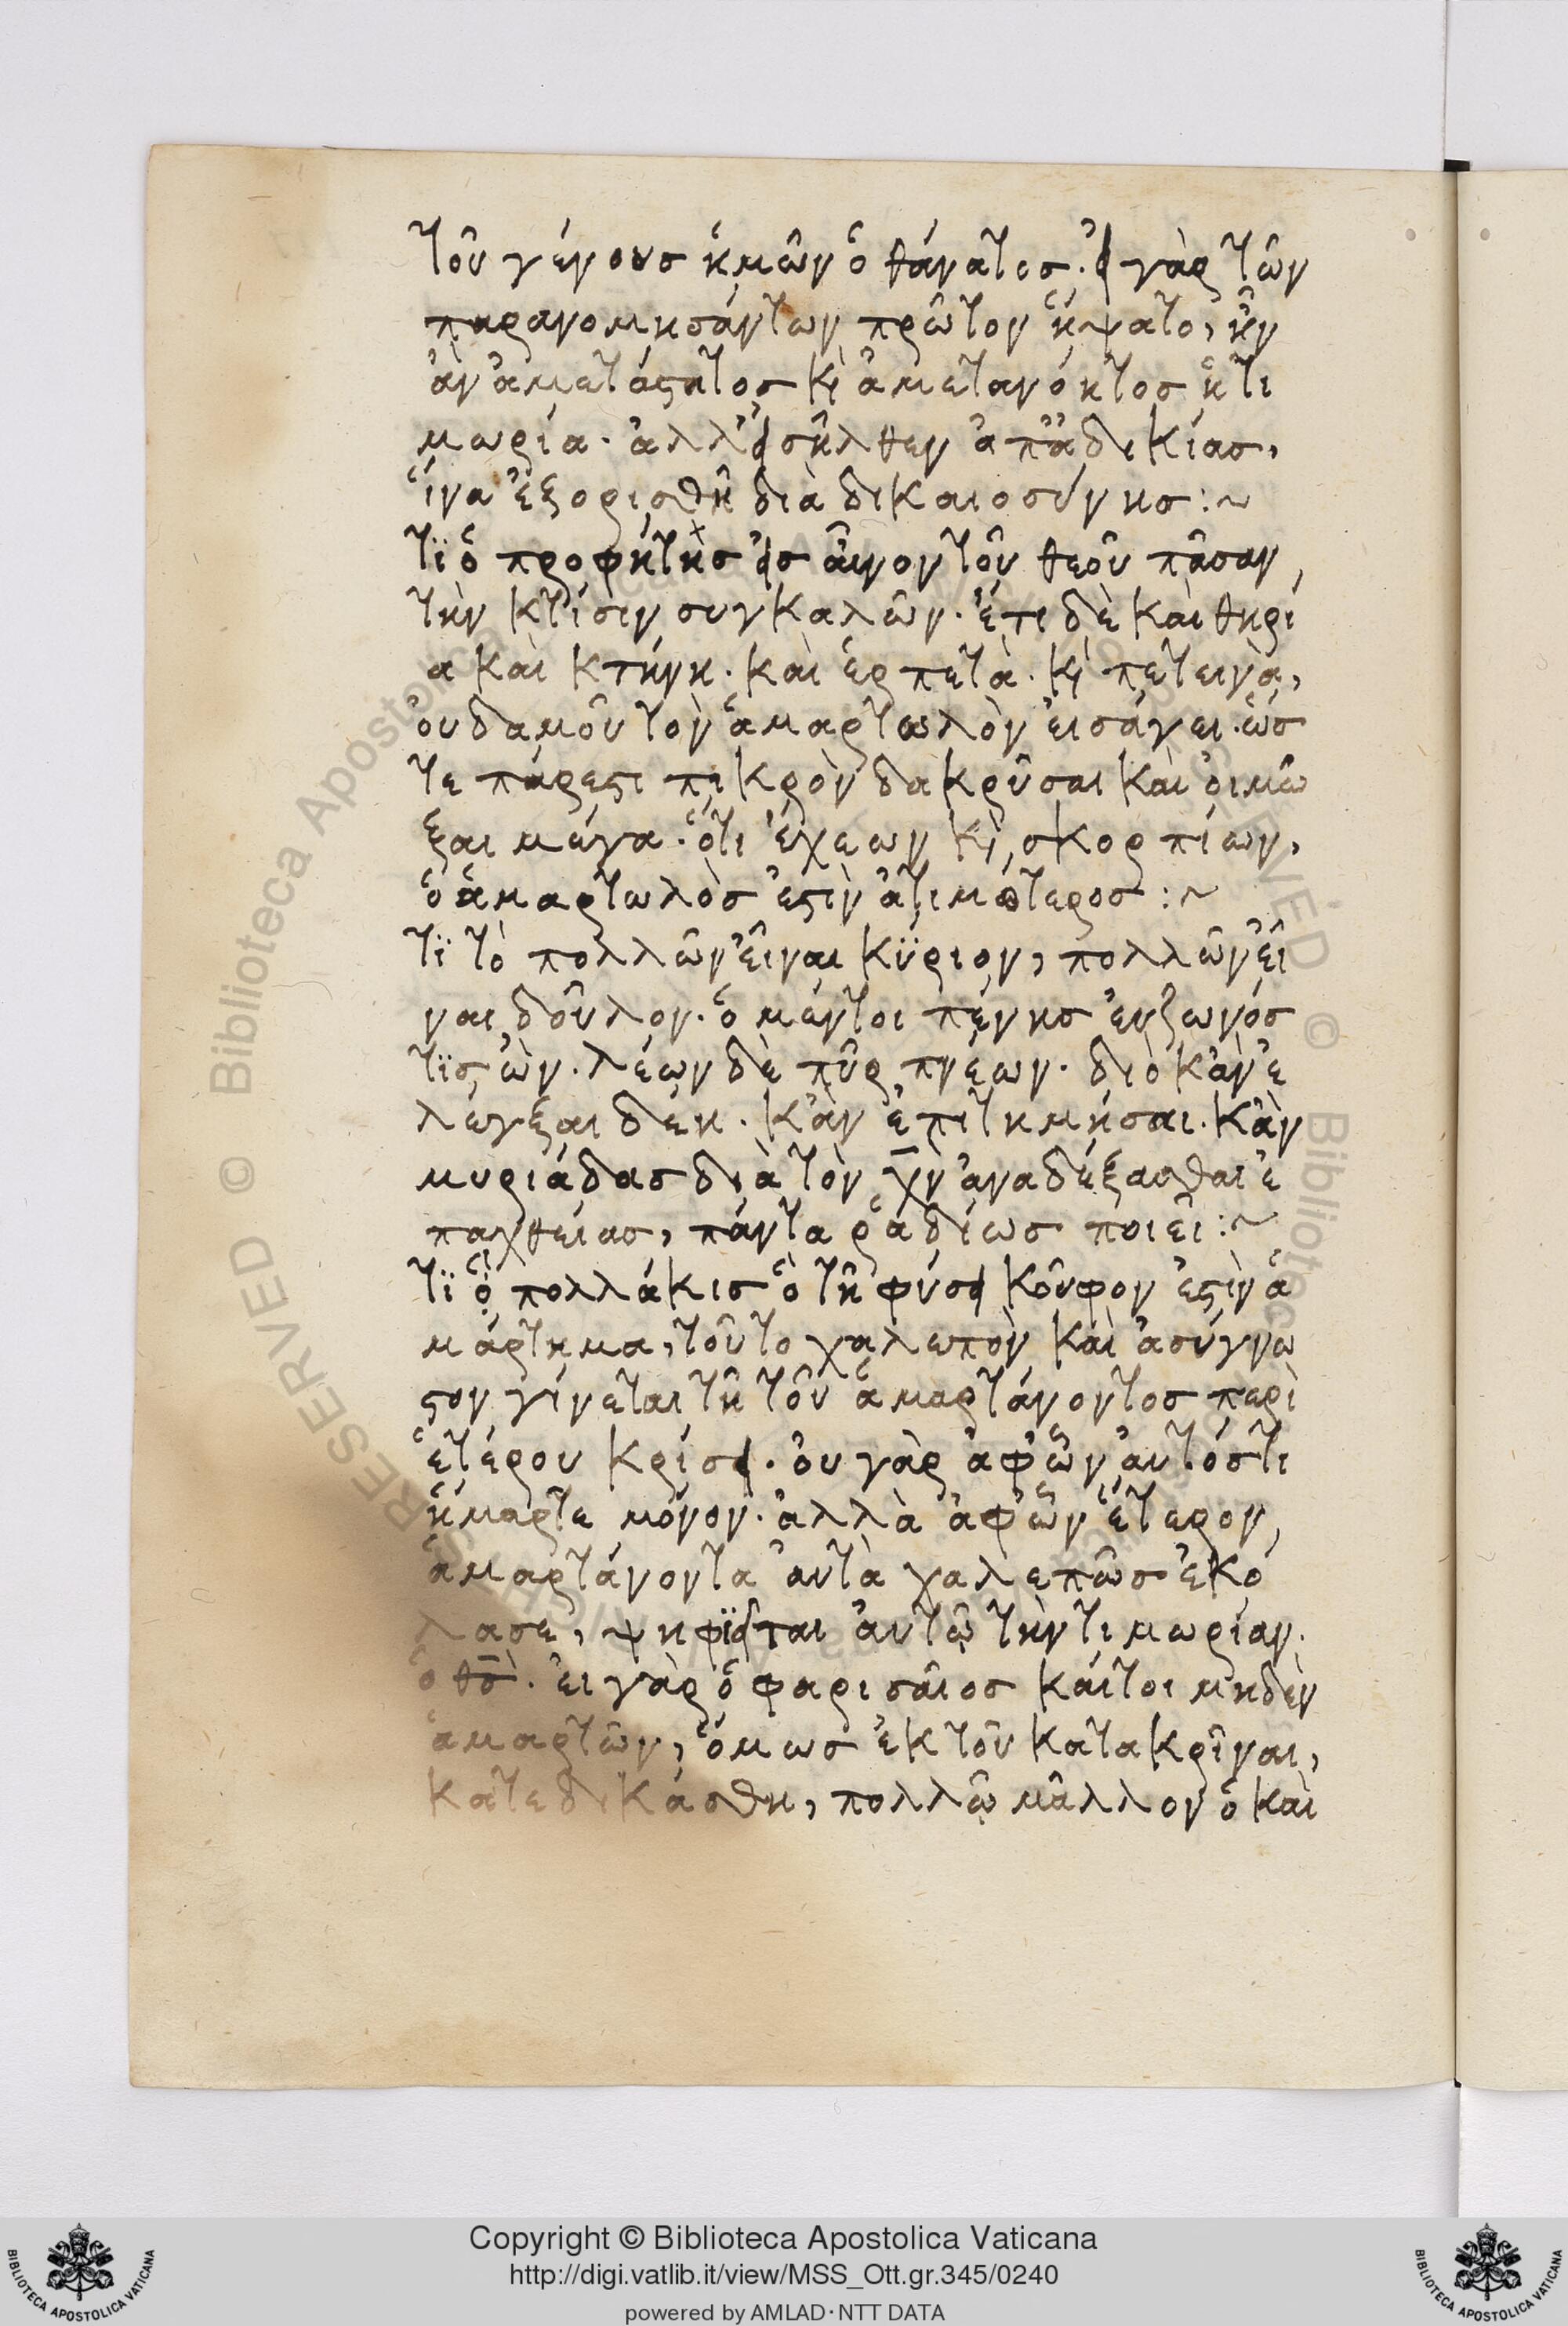 τοῦ γένους ἡμῶν ὁ θάνατος. εἰ γὰρ τῶν
παρανομησάντων πρῶτον ἥψατο, ἦν
ἀν ἀμετάστητος κὶ ἀμετανόητος ἡ τι
μωρία. ἀλλ' εἰσῆλθεν ἀπ' ἀδικίας,
ἵνα ἐξορισθῆ διὰ δικαιοσύνης :~
τϊ ὁ προφήτης εἰς αἶνον τοῦ θεοῦ πᾶσαν,
τὴν κτίσιν συγκαλῶν. ἔτι δὲ καὶ θηρί
α καὶ κτήνη. καὶ ἑρπετὰ. κὶ πετεινὰ,
ὀυδαμοῦ τὸν ἁμαρτωλὸν ἐισάγει. ὥσ
τε πάρεστι πικρὸν δακρῦσαι καὶ ὀιμῶ
ξαι μέγα. ὅτι ἔχεων κὶ σκορπίων,
ὁ ἁμαρτωλὸς ἐστὶν ἀτιμώτερος :~
τϊ τὸ πολλῶν εἶναι κύριον, πολλῶν εἶ
ναι δοῦλον. ὁ μέντοι πένης ἐυζωνός
τϊς ὢν. λέων δὲ πῦρ πνέων. διὸ κἂν ἐ
λέγξαι δέη. κἂν ἐπιτημήσαι. κἂν
μυριάδας διὰ τὸν χ̅ν̅ ἀναδέξασθαι ἐ
παχθείας, πάντα ῥαδίως ποιεῖ :~
τϊ ὅ πολλάκις ὃ τῆ φύσει κοῦφον ἐστὶν ἁ
μάρτημα, τοῦτο χαλεπὸν καὶ ἀσύγνω
στον γίνεται τῆ τοῦ ἁμαρτάνοντος περὶ
ἑτέρου κρίσει. ὀυ γὰρ ἀφ' ὧν ἀυτός τι
ἥμαρτε μόνον. ἀλλὰ ἀφ' ὧν ἕτερον,
ἁμαρτάνοντα ἀυτὰ χαλεπῶς ἐκό
λασε, ψηφϊεῖται ἀυτῶ τὴν τιμωρίαν.
ὁ θ̅ς̅. ἐι γὰρ ὁ φαρισαῖος καίτοι μηδὲν
ἁμαρτῶν, ὅμως ἐκ τοῦ κατακρῖναι,
κατεδικάσθη, πολλῶ μᾶλλον ὁ καὶ
Copyright © Biblioteca Apostolica Vaticana
http://digi.vatlib.it/view/MSS_Ott.gr.345/0240
powered by AMLAD·NTT DATA